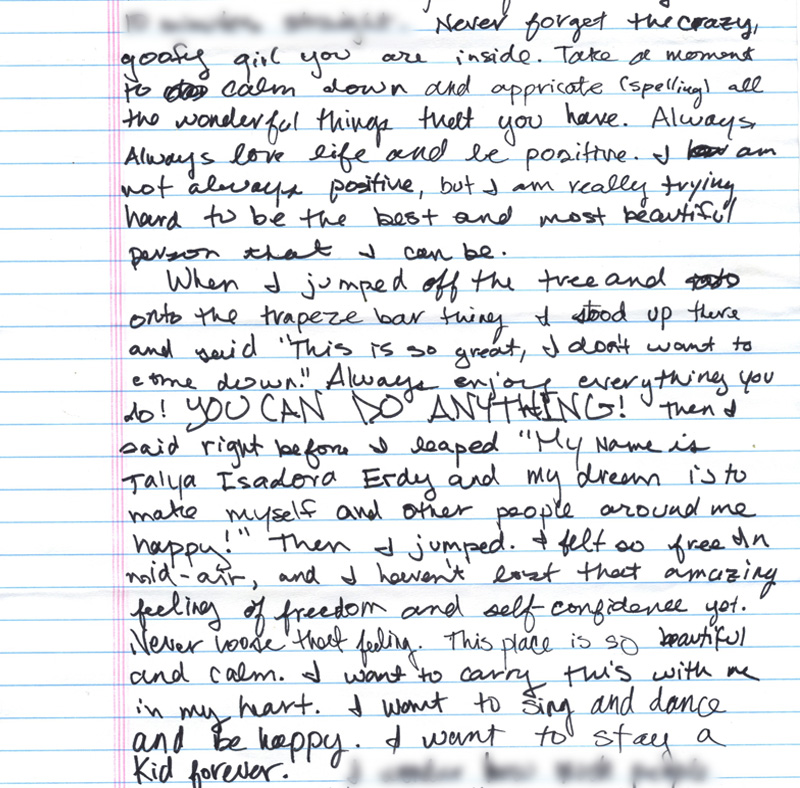 Never forget the crazy,
goofy girl you are inside. Take a moment
to calm down and appricate (spelling) all
the wonderful things that you have. Always,
Always love life and be positive. I am
not always positive, but I am really trying
hard to be the best and most beautiful
person that I can be.
When I jumped off the tree and
onto the trapeze bar thing I stood up there
and said "This is so great, I don't want to
come down." Always enjoy everything you
do! YOU CAN DO ANYTHING! Then I
said right before I leaped "My Name is
Talya Isadora Erdy and my dream is to
make myself and other people around me
happy!" Then I jumped. I felt so free In
mid-air, and I haven't lost that amazing
feeling of freedom and self-confidence yet.
Never loose that feeling. This place is so beautiful
and calm. I want to carry this with me
in my heart. I want to sing and dance
and be happy. I want to stay a
Kid forever.